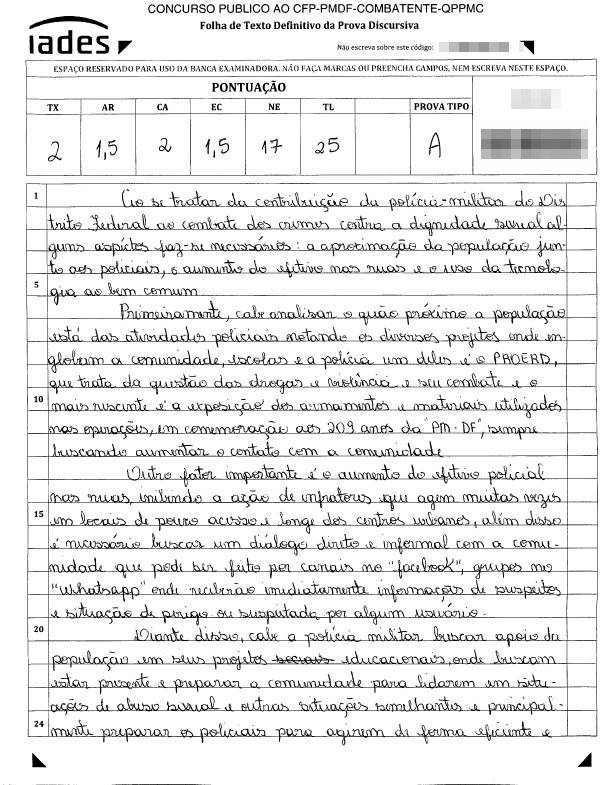 CONCURSO PUBLICO AO CFP-PMDF-COMBATENTE-QPPMC
Folha de Texto Definitivo da Prova Discursiva
iades
Não escreva sobre este código:
ESPAÇO RESERVADO PARA USO DA BANCA EXAMINADORA. NÃO FAÇA MARCAS OU PREENCHA CAMPOS, NEM ESCREVA NESTE ESPAÇO.
PONTUAÇÃO
TX AR CA EC NE TL PROVA TIPO
2 1,5 2 1,5 17 25 A
1 Ao se tratar da contribuição da polícia-militar do Dis
trito Federal ao combate dos crimes contra a dignidade sexual al-
guns aspéctos faz-se necessários: a aproximação da população jun-
to aos policiais, o aumento do efetivo nas ruas e o uso da tecnolo-
5 gia ao bem comum.
Primeiramente, cabe analisar o quão próximo a população
está das atividades policiais notando os diversos projetos onde en-
globam a comunidade, escolas e a polícia um deles é o PROERD,
que trata da questão das drogas e violência e seu combate e o
10 mais rescente é a exposição dos armamentos e materiais utilizados
nas operações, em comemoração aos 209 anos da "PM-DF", sempre
buscando aumentar o contato com a comunidade.
Outro fator importante é o aumento do efetivo policial
nas ruas, inibindo a ação de infratores que agem muitas vezes
15 em locais de pouco acesso e longe dos centros urbanos, além disso
é necessário buscar um diálogo direto e informal com a comu-
nidade que pode ser feito por canais no "facebook", grupos no
"whatsapp" onde receberão imediatamente informações de suspeitos
e situação de perigo ou suspeitada por algum usuário.
20 Diante disso, cabe a polícia militar buscar apoio da
população em seus projetos sociais educacionais, onde buscam
estar presente e preparar a comunidade para lidarem em situ-
ações de abuso sexual e outras situações semelhantes e principal-
24 mente preparar os policiais para agirem de forma eficiente e